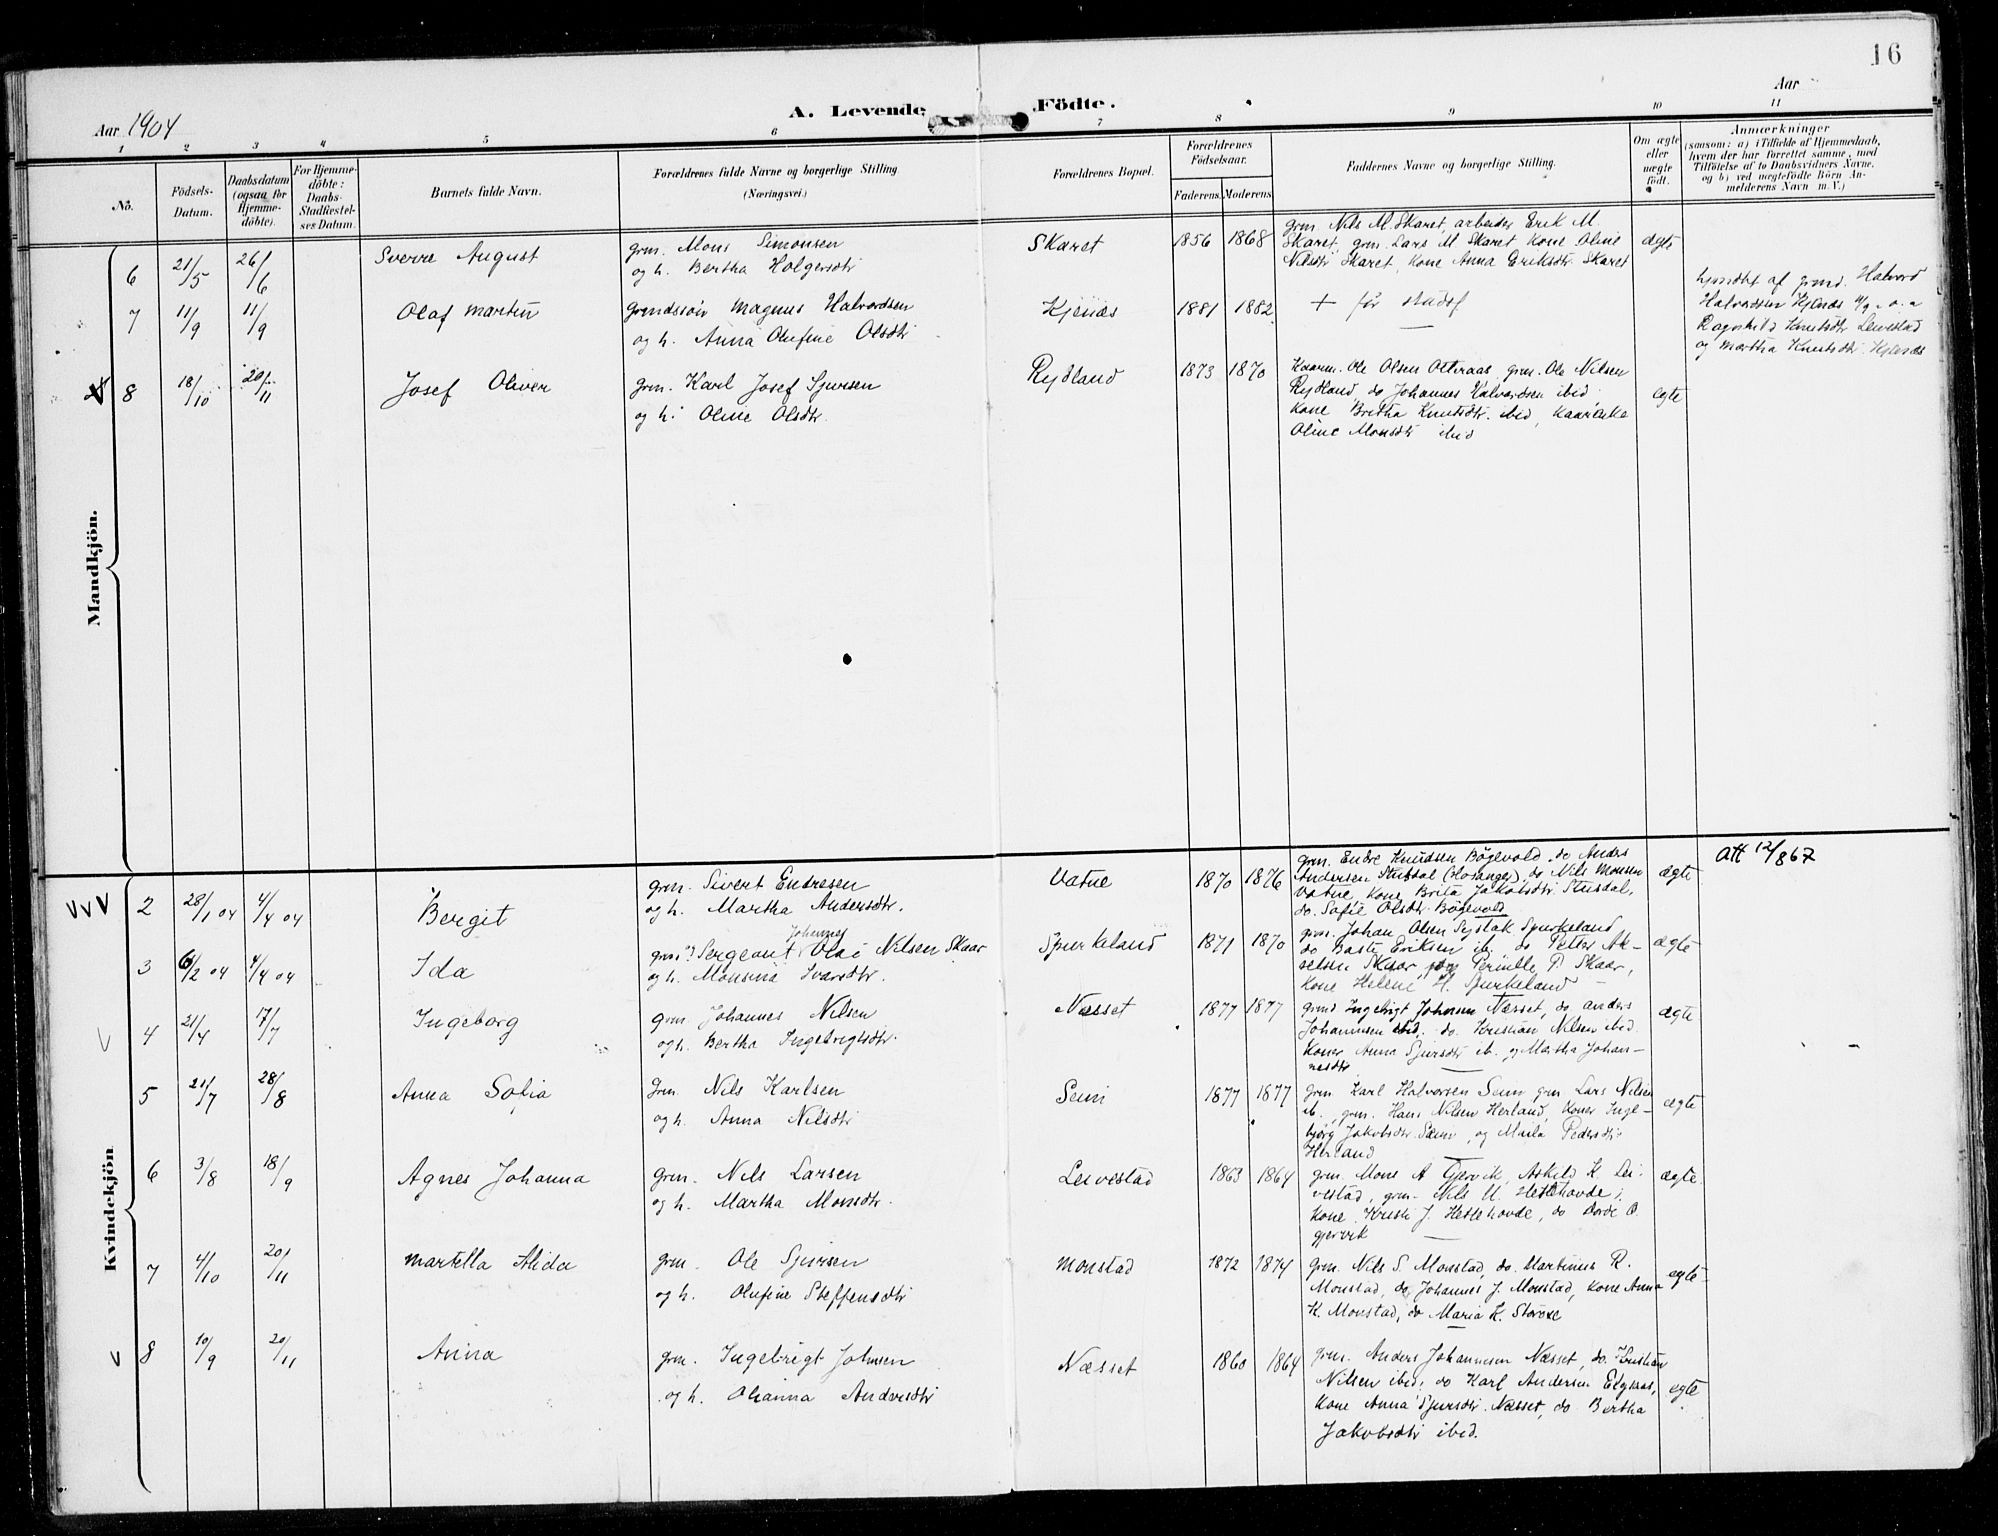 16
Aar 1904
A. Levende Födte.
Aar
1 2 3 4 5 6 7 8 9 10 11
No.
Födsels-Datum.
Daabsdatum (ogsaa for Hjemme-döbte).
For Hjemme-döbte: Daabs-Stadfæstel-ses Datum.
Barnets fulde Navn.
Forældrenes fulde Navne og borgerlige Stilling (Næringsvei.)
Forældrenes Bopæl.
Forældrenes Födselsaar.
Faderens. Moderens.
Faddernes Navne og borgerlige Stilling.
Om ægte eller uægte födt.
Anmærkninger
(saasom: a) i Tilfælde af Hjemmedaab,
hvem der har forrettet samme, med
Tilföielse af to Daabsvidners Navne.
og b) ved uægtefödte Börn An-
melderens Navn m. V.)
Mandkjön.
6 21/5 26/6 Sverre August
grm. Mons Simonsen
og h. Bertha Holgersdtr
Skaret 1856 1868
grm. Nils M. Skaret, arbeider Erik M.
Skaret, grm. Lars M Skaret Kone Oline
Nilsdtr Skaret, Kone Anna Eriksdtr. Skaret
ægte
7 11/9 11/9 Olaf Martin
grmdssøn Magnus Halvordsen
og h. Anna Olufine Olsdtr
Kjenæs 1881 1882
+ før stadsf
hjmdøbt af grmd. Halvord
Halvordsen Kjenæs 11/9
Ragnhild Knutsdtr Leivestad
og Martha Knutsdtr Kjenæs
8 18/10 20/11 Josef Oliver
grm. Karl Josef Sjursen
og h. Oline Olsdtr.
Rydland 1873 1870
Kaarm. Ole Olsen Otteraas, grm. Ole Nilsen
Rydland, do Johannes Halvordsen ibid,
Kone Britha Knutsdtr. ibid, kaarenke
Oline Monsdtr ibid
egte
Kvindekjön
2 28/1 04 4/4 04 Bergit
grm. Sivert Endresen
og h. Martha Andersdtr.
Vatne 1870 1876
grm. Endre Knudsen Bögevold, do Anders
Andersen Stusdal (Hosanger), do Nils Monsen
Vatne, Kone Brita Jakobsdtr Stusdal,
do. Sofie Olsdtr Bögevold
ægte
Att 12/8 67
3 6/2 04 4/4 04 Ida
Johannes
grm. Sergeant Olai Nilsen Skaar
og h. Monsina Ivarsdtr.
Spurkeland 1871 1870
grm. Johan Olsen Systak Spurkeland
do Baste Eriksen ib. do Petter Ak-
selsen Skaar, Pernille P. Skaar,
Kone Helene H. Spurkeland
ægte
4 21/4 17/7 Ingeborg
grm. Johannes Nilsen
og h. Bertha Ingebrigtsdtr.
Næsset 1877 1877
grmd Ingebrigt Johnsen Næsset, do. Anders
Johannesen ibid. do. Kristian Nilsen ibid.
Koner Anna Sjursdtr ib. og Martha Johan-
nesdtr
ægte
5 21/7 28/8 Anna Sofia
Grm. Nils Karlsen
og h. Anna Nilsdtr
Seim 1877 1877
grm Karl Halvorsen Seim grm Lars Nilsen
ib., grm. Hans Nilsen Herland, Koner Inge-
björg Jakobsdtr. Seim, og Marta Pedersdtr
Herland
ægte
6 3/8 18/9 Agnes Johanna
grm. Nils Larsen
og h. Martha Monsdtr.
Leivestad 1863 1864
grm. Mons A Gjervik, Askild K. Lei-
vestad, grm. Nils U. Hettehovde,
Kone Kristi J. Hettehovde, do Dorde O.
gjervik
ægte.
7 4/10 20/11 Martella Alida
grm. Ole Sjursen
og h. Olufine Steffensdtr
Monstad 1872 1874
grm. Nils S. Monstad, do. Martinus R.
Monstad, do Johannes J. Monstad, Kone Anna
K. Monstad, do Maria K. Storoxe
egte
8 10/9 20/11 Anna
grm. Ingebrigt Johnsen
og h. Olianna Andersdtr
Næsset 1860 1864
grm. Anders Johannesen Næsset, do. Kristian
Nilsen ibid, do Karl Andersen Elgsaas,
Kone Anna Sjursdtr. Næsset, do Bertha
Jakobsdtr ibid.
egte